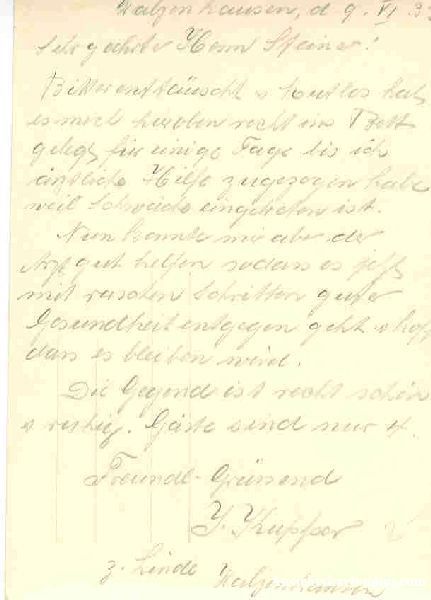 Walzenhausen, d 9. VI 33
Sehr geehrter Herr Steiner!
Bitter enttäuscht &
es mich recht ins Bett
gelegt für einige Tage bis ich
ärztliche Hilfe zugezogen habe
weil Schwäche eingetreten ist.
Nun konnte mir aber der
Arzt gut helfen sodass es jetzt
mit raschen Schritten guter
Gesundheit entgegen geht & hoff
dass es bleiben wird.
Die Gegend ist recht schön
& ruhig. Gäste sind nur 4.
Freundl. Grüssend
J. Kupfer
z. Linde Walzenhausen